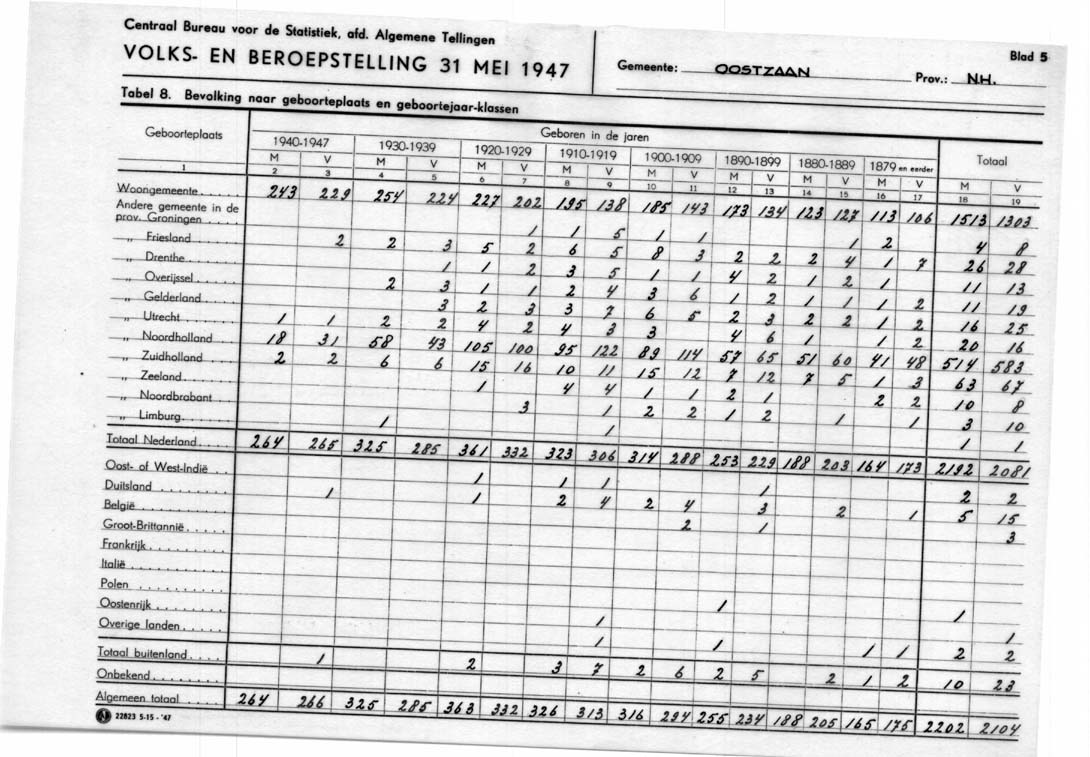 Centraal Bureau voor de Statistiek, afd. Algemene Tellingen
VOLKS- EN BEROEPSTELLING 31 MEI 1947
Gemeente: OOSTZAAN Prov.: N.H.
Blad 5
Tabel 8. Bevolking naar geboorteplaats en geboortejaar-klassen
Geboorteplaats Geboren in de jaren Totaal
1940-1947 1930-1939 1920-1929 1910-1919 1900-1909 1890-1899 1880-1889 1879 en eerder
M V M V M V M V M V M V M V M V M V
1 2 3 4 5 6 7 8 9 10 11 12 13 14 15 16 17 18 19
Woongemeente 243 229 254 224 227 202 195 138 185 143 173 134 123 127 113 106 1513 1303
Andere gemeente in de
prov. Groningen 1 1 5 1 1 1 2 4 8
„ Friesland 2 2 3 5 2 6 5 8 3 2 2 2 4 1 7 26 28
„ Drenthe 1 1 2 3 5 1 1 4 2 1 2 1 11 13
„ Overijssel 2 3 1 1 2 4 3 6 1 2 1 1 1 2 11 19
„ Gelderland 3 2 3 3 7 6 5 2 3 2 2 1 2 16 25
„ Utrecht 1 1 2 2 4 2 4 3 3 4 6 1 1 2 20 16
„ Noordholland 18 31 58 43 105 100 95 122 89 114 57 65 51 60 41 48 514 583
„ Zuidholland 2 2 6 6 15 16 10 11 15 12 7 12 7 5 1 3 63 67
„ Zeeland 1 4 4 1 1 2 1 2 2 10 8
„ Noordbrabant 3 1 2 2 1 2 1 1 3 10
„ Limburg 1 1 1 1
Totaal Nederland 264 265 325 285 361 332 323 306 314 288 253 229 188 203 164 173 2192 2081
Oost- of West-Indië 1 1 1 1 2 2
Duitsland 1 1 2 4 2 4 3 2 1 5 15
België 2 1 3
Groot-Brittannië
Frankrijk
Italië
Polen 1 1
Oostenrijk 1 1
Overige landen 1 1 1 1 2 2
Totaal buitenland 1 2 3 7 2 6 2 5 2 1 2 10 23
Onbekend
Algemeen totaal 264 266 325 285 363 332 326 313 316 294 255 234 188 205 165 175 2202 2104
22823 5-15 - '47